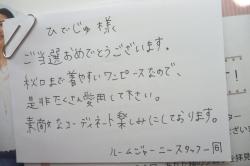 ひでじゅ 様
ご当選おめでとうございます。
秋口まで着やすいワンピースなので、
是非たくさん愛用して下さい。
素敵なコーディネート楽しみにしております。
ルームジャーニースタッフ一同